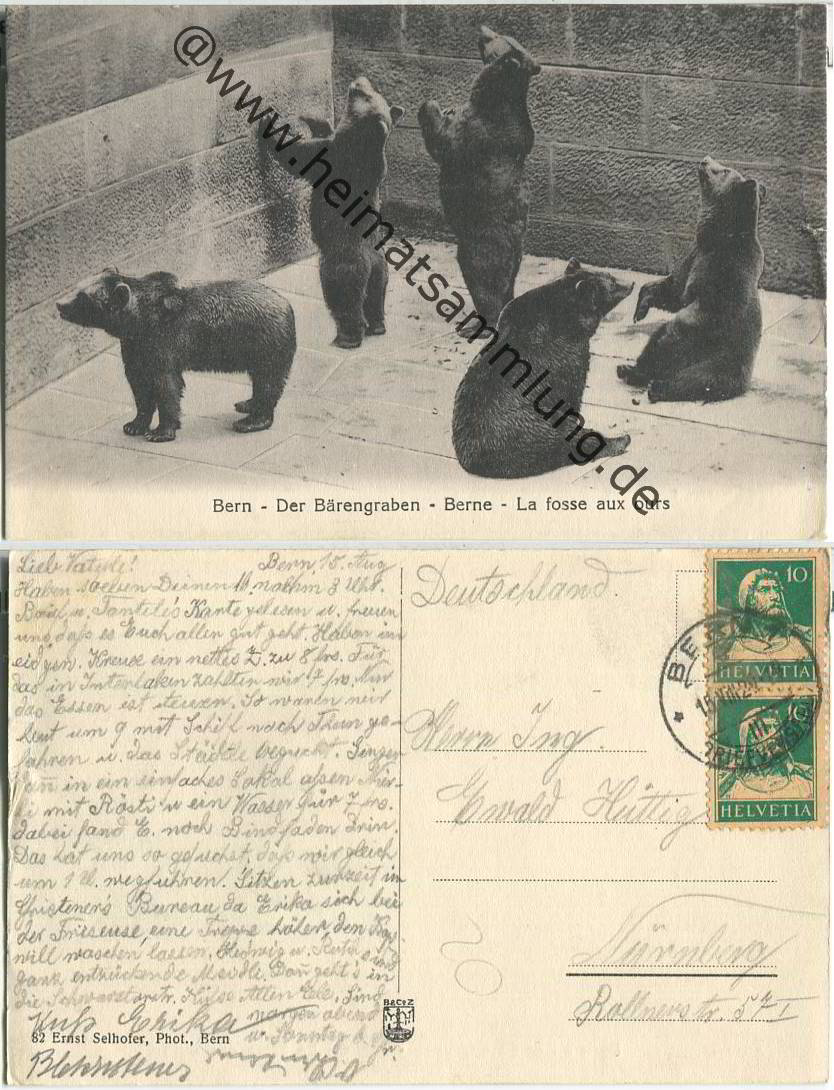 @www.heimatsammlung.de
Bern - Der Bärengraben - Berne - La fosse aux ours
Lieb Vaterle! Bern, 15. Aug.
Haben soeben Deinen nachm 3 Uhr.
u. Tantele's Karte gelesen u. freuen
uns, dass es Euch allen gut geht. Haben im
eidgen. Kreuz ein nettes Z. zu 8 frs. Für
das in Interlaken zahlten wir 7 frs. Nur
das Essen ist teuer. So waren wir
heut um 9 mit Schiff nach Thun ge-
fahren u. das Städtle beguckt. Gingen
dann in ein einfaches Lokal assen
mit Rösti u ein Wasser für 7 frs.
dabei fand E. noch Bindfaden drin.
Das hat uns so gefuchst, dass wir gleich
um 1 U. wegfuhren. Sitzen zurzeit in
Christener's Bureau, da Erika sich bei
der Friseuse, eine Treppe höher, den Kopf
will waschen lassen. Hedwig u. Ruth sind
ganz entzückende Mädle. Dann geht's in
die Küsse Allen Sind
Kuss Erika
morgen abend
u. Sonntag
Deutschland.
Herrn Ing.
Ewald Hüttig
Nürnberg
Rollnerstr. 57 I
10
HELVETIA
10
HELVETIA
BERN
BRIEFVERSAND
B&CoZ
82 Ernst Selhofer, Phot., Bern